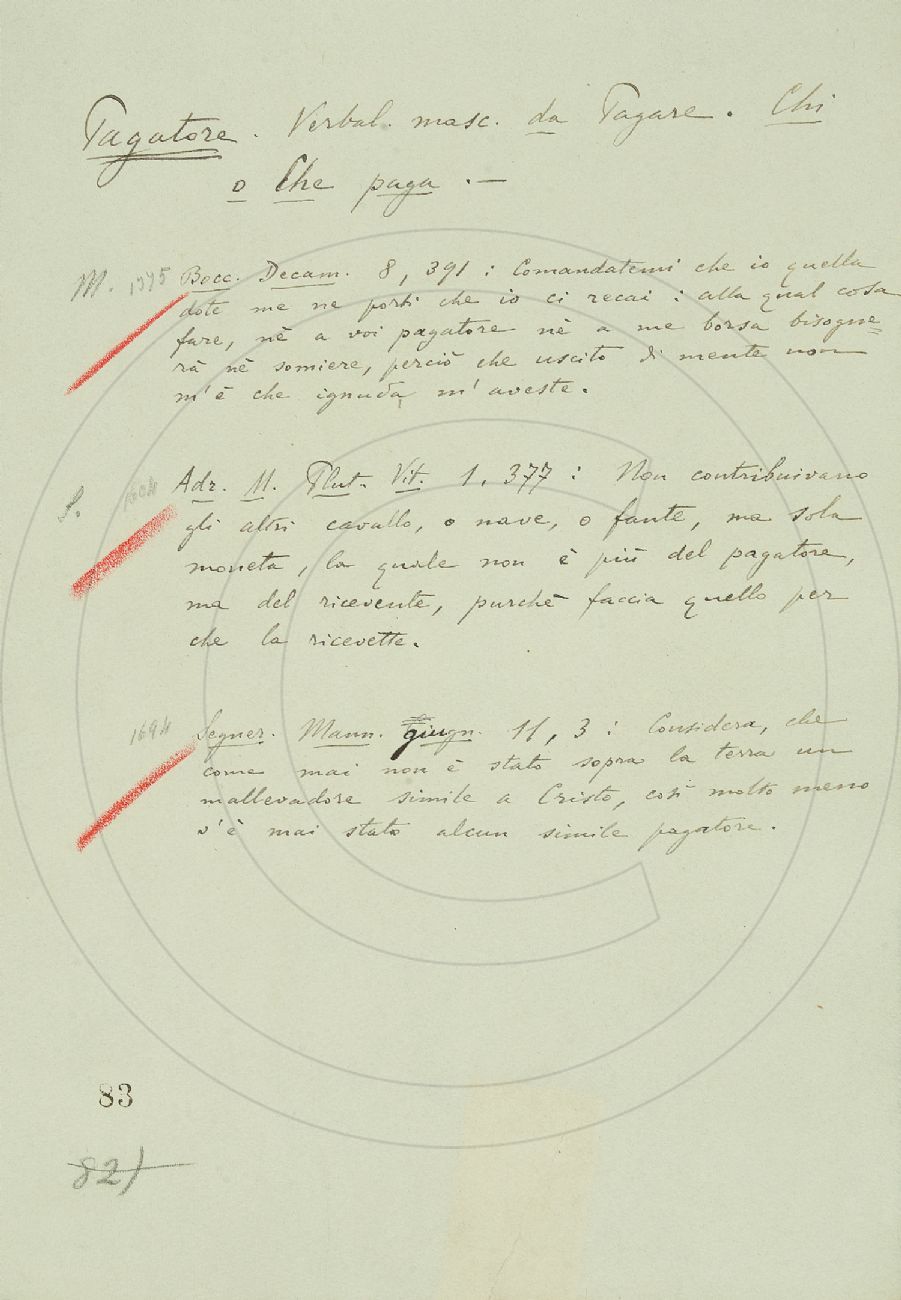 Pagatore. Verbal. masc. da Pagare. Chi
o Che paga. —
M. 1375 Bocc. Decam. 8, 391: Comandatemi che io quella
dote me ne porti che io ci recai: alla qual cosa
fare, nè a voi pagatore nè a me borsa bisogne=
rà nè somiere, perciò che uscito di mente non
m'è che ignuda m'aveste.
S. 1604 Adr. M. Plut. Vit. 1, 377: Non contribuivano
gli altri cavallo, o nave, o fante, ma sola
moneta, la quale non è più del pagatore,
ma del ricevente, purchè faccia quello per
che la ricevette.
1694 Segner. Mann. giugn. 11, 3: Considera, che
come mai non è stato sopra la terra un
mallevadore simile a Cristo, così molto meno
v'è mai stato alcun simile pagatore.
83
82)